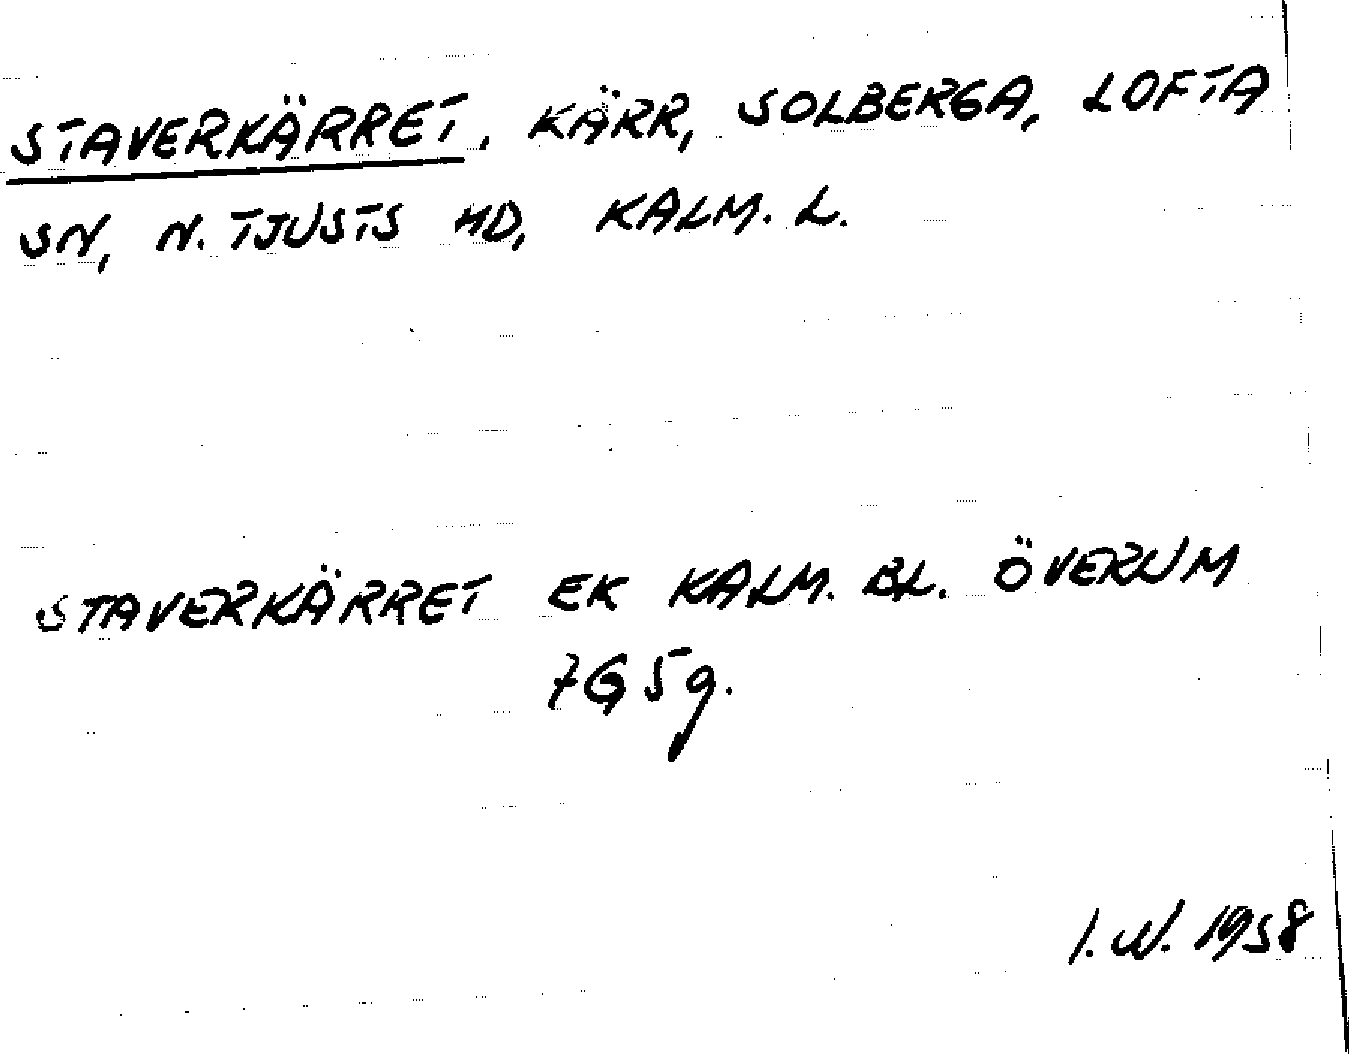 STAVERKÄRRET, KÄRR, SOLBERGA, LOFTA
SN, N. TJUSTS HD, KALM. L.
STAVERKÄRRET EK KALM. BL. ÖVERUM
7G5g.
I.W. 1958